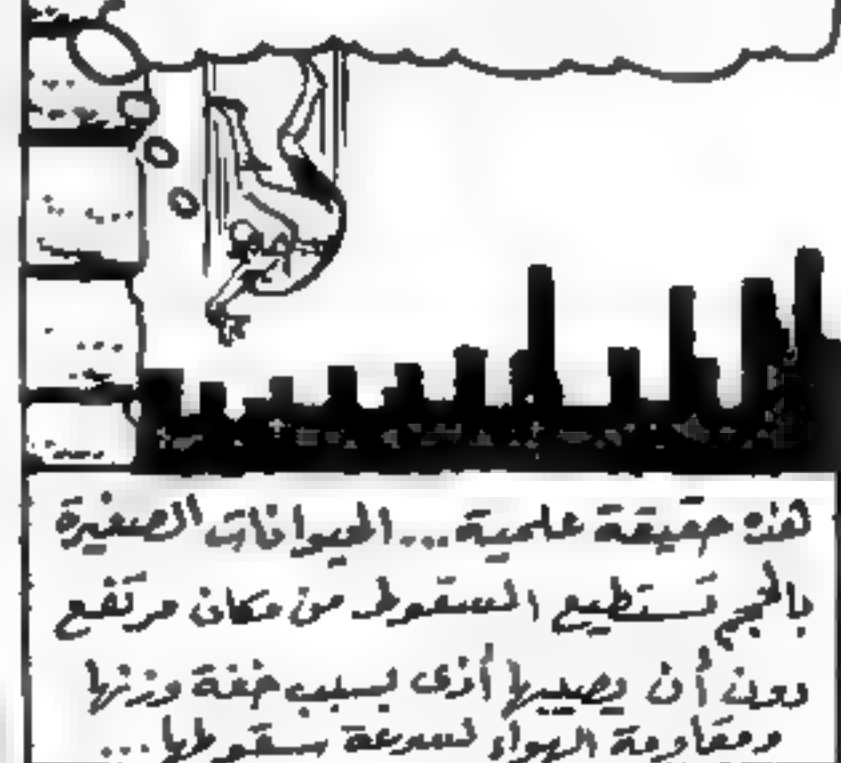 هذه حقيقة علمية... الحيوانات الصغيرة
بالحجم تستطيع السقوط من مكان مرتفع
دون أن يصيبها أذى بسبب خفة وزنها
ومقاومة الهواء لسرعة سقوطها...